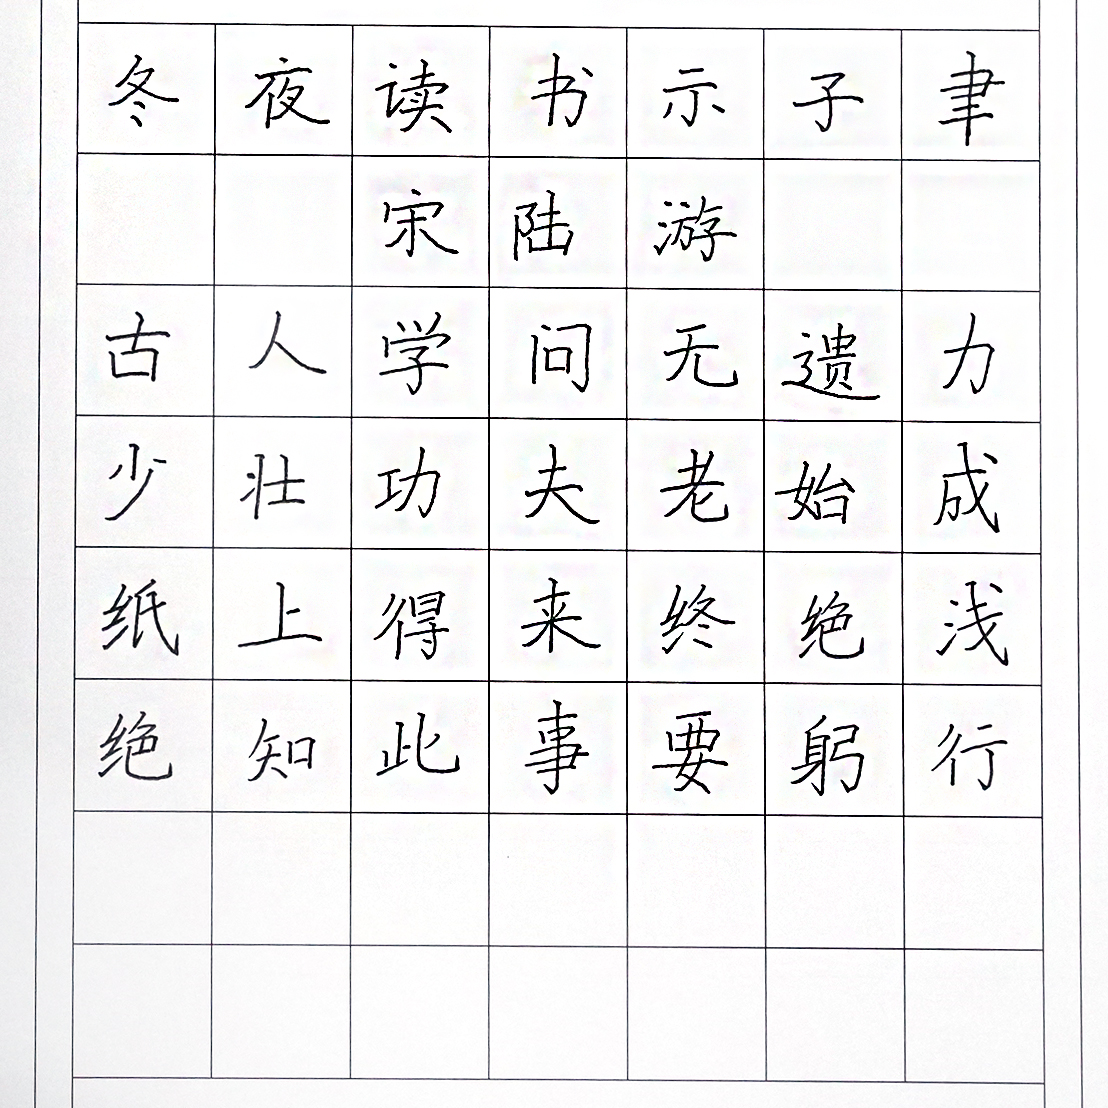 冬夜读书示子聿
宋陆游
古人学问无遗力
少壮功夫老始成
纸上得来终绝浅
绝知此事要躬行